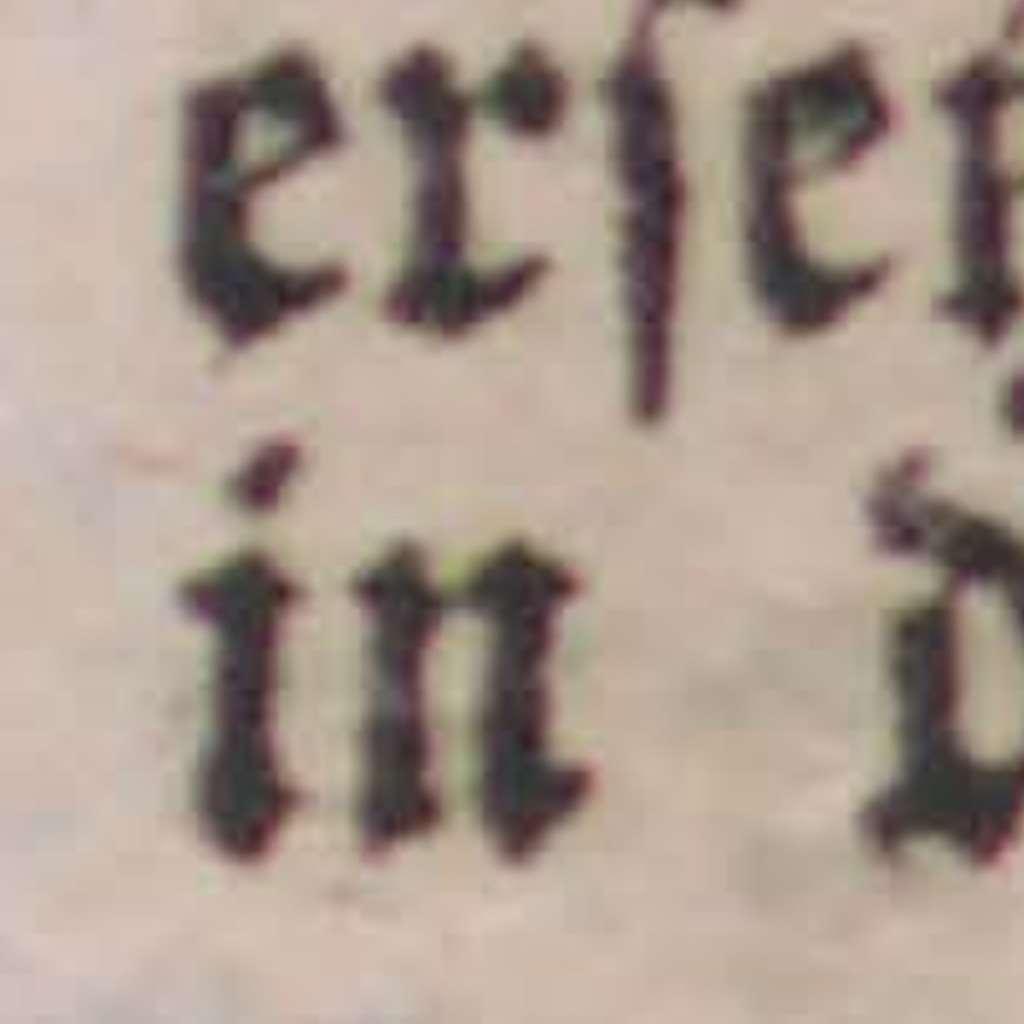 erſe
in d